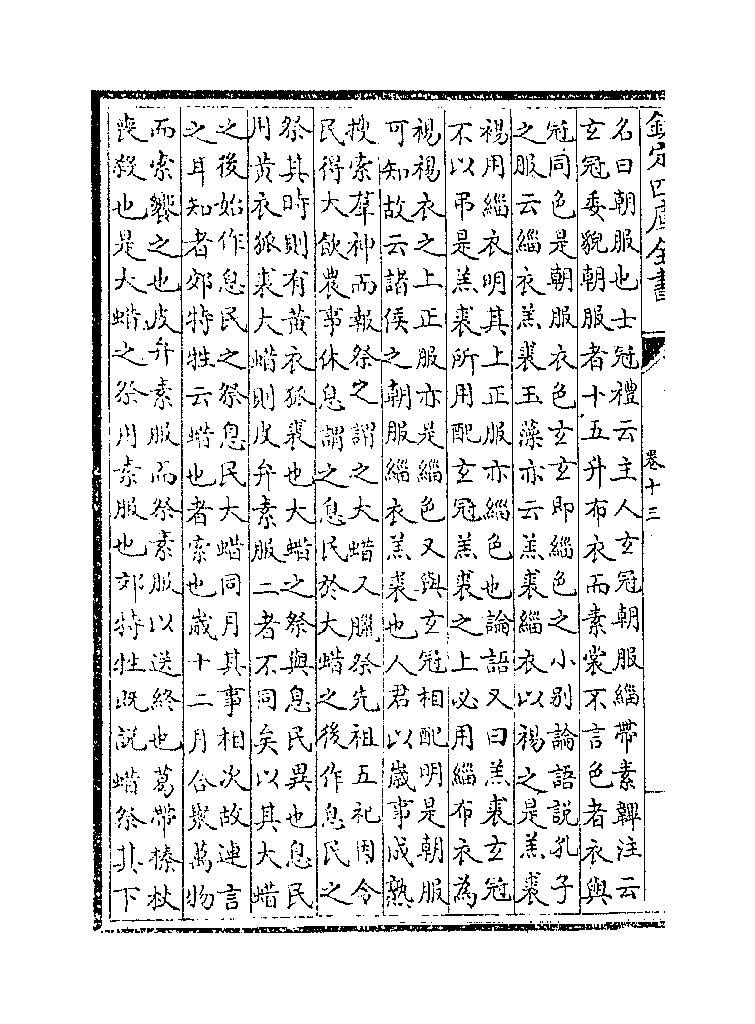 欽定四庫全書
卷十三
名曰朝服也士冠禮云主人玄冠朝服緇帶素韠注云
玄冠委貌朝服者十五升布衣而素裳不言色者衣與
冠同色是朝服衣色玄玄即緇色之小别論語說孔子
之服云緇衣羔裘玉藻亦云羔裘緇衣以裼之是羔裘
裼用緇衣明其上正服亦緇色也論語又曰羔裘玄冠
不以弔是羔裘所用配玄冠羔裘之上必用緇布衣為
裼裼衣之上正服亦是緇色又與玄冠相配明是朝服
可知故云諸侯之朝服緇衣羔裘也人君以歲事成熟
搜索羣神而報祭之謂之大蜡又臘祭先祖五祀因令
民得大飲農事休息謂之息民於大蜡之後作息民之
祭其時則有黃衣狐裘也大蜡之祭與息民異也息民
用黃衣狐裘大蜡則皮弁素服二者不同矣以其大蜡
之後始作息民之祭息民大蜡同月其事相次故連言
之耳知者郊特牲云蜡也者索也歲十二月合聚萬物
而索饗之也皮弁素服而祭素服以送終也葛帶榛杖
喪殺也是大蜡之祭用素服也郊特牲既說蜡祭其下